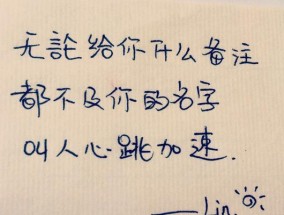 无論给你什么备注
都不及你的名字
叫人心跳加速.
——Lin